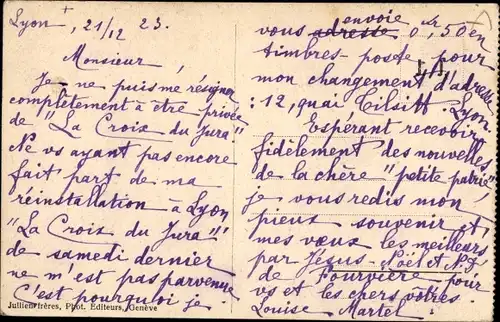 Lyon, 21/12 23.
Monsieur,
Je ne puis me résigner
complètement à être privée
de "La Croix du Jura"
Ne vs ayant pas encore
fait part de ma
réinstallation à Lyon
"La Croix du Jura"
de samedi dernier
ne m'est pas parvenue
C'est pourquoi je
Jullien frères, Phot. Editeurs, Genève
envoie
vous adresse 0 fr, 50 en
timbres-poste pour
mon changement d'adresse
: 12, quai Tilsitt Lyon.
Espérant recevoir
fidèlement des nouvelles
de la chère "petite patrie",
je vous redis mon
pieux souvenir et
mes vœux les meilleurs
par Jésus-Noël et N. D.
de Fourvière pour
vs et les chers vôtres.
Louise Martel